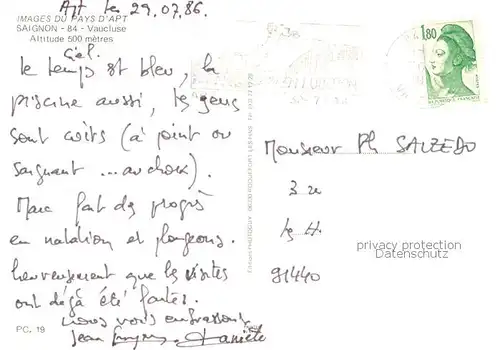 Apt le 29.07.86.
IMAGES DU PAYS D'APT
SAIGNON - 84 - Vaucluse
Altitude 500 mètres
Ciel.
le temps est bleu, la
piscine aussi, les gens
sont cuits (à point ou
saignant ... au choix).
Marc fait des progrès
en natation et plongeons.
heureusement que les visites
ont déjà été faites.
nous vous embrassons
Jean Danièle
PC. 19
1,80
Monsieur Ph SALZEDO
3
les H.
91440
privacy protection
Datenschutz